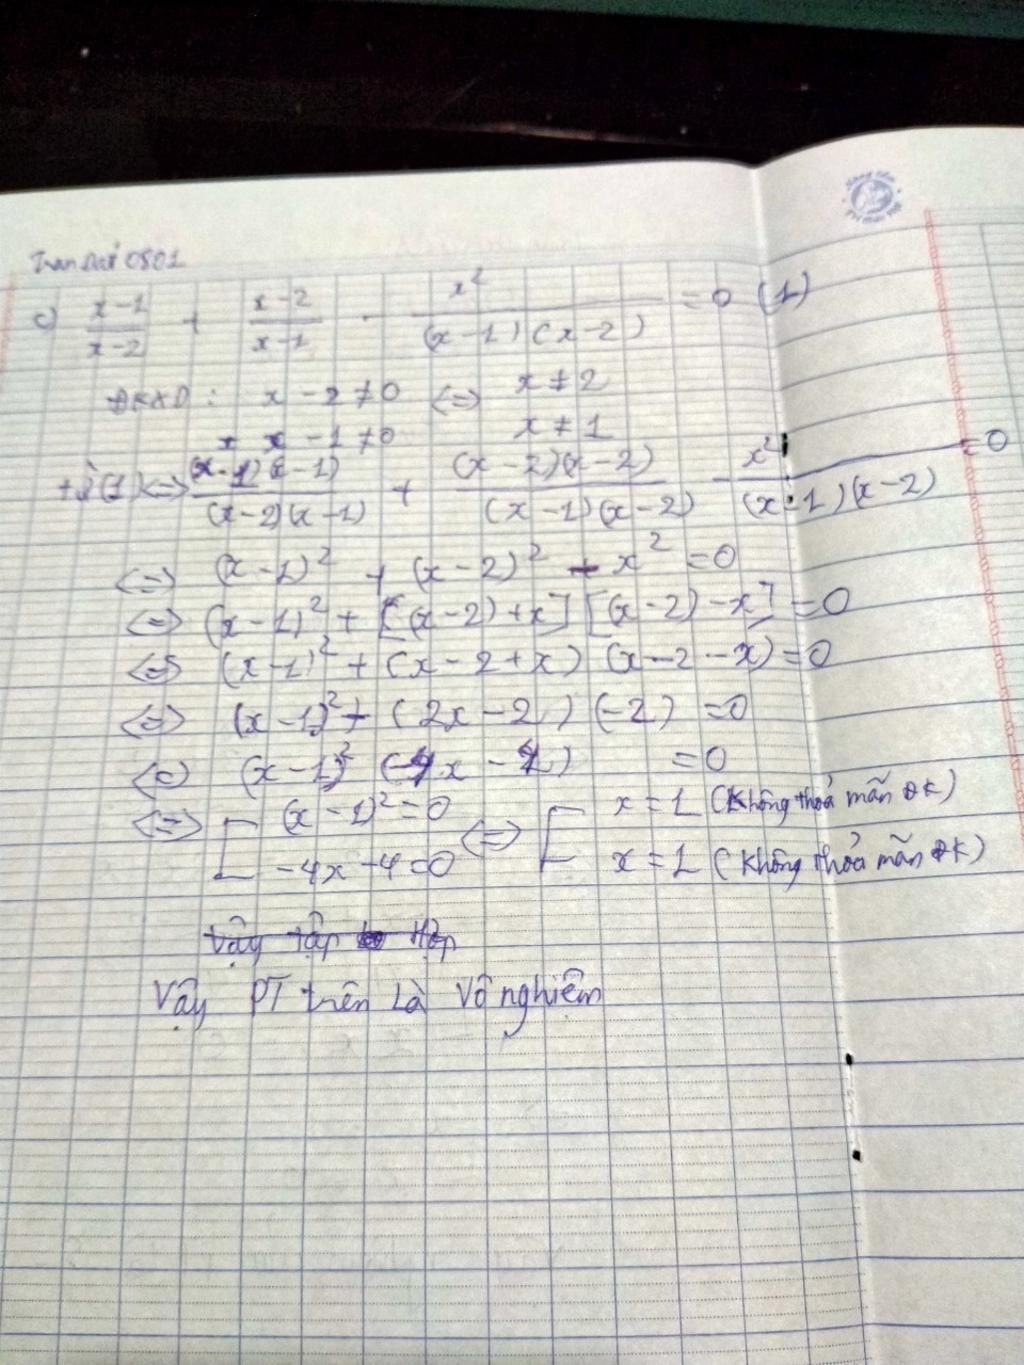 Tran Dat 0801
c) \frac{x-1}{x-2} + \frac{x-2}{x-1} - \frac{x^2}{(x-1)(x-2)} = 0 (1)
ĐKXĐ: x - 2 ≠ 0 <=> x ≠ 2
x - 1 ≠ 0 x ≠ 1
(1) <=> \frac{(x-1)(x-1)}{(x-2)(x-1)} + \frac{(x-2)(x-2)}{(x-1)(x-2)} - \frac{x^2}{(x-1)(x-2)} = 0
<=> (x-1)^2 + (x-2)^2 - x^2 = 0
<=> (x-1)^2 + [(x-2)+x] [(x-2)-x] = 0
<=> (x-1)^2 + (x-2+x) (x-2-x) = 0
<=> (x-1)^2 + (2x-2) (-2) = 0
<=> (x-1)^2 (-4x - 4) = 0
<=> [ (x-1)^2 = 0 <=> [ x = 1 (Không thoả mãn ĐK)
-4x - 4 = 0 x = 1 (Không thỏa mãn ĐK)
Vậy tập Hợp
Vậy PT trên Là Vô nghiệm